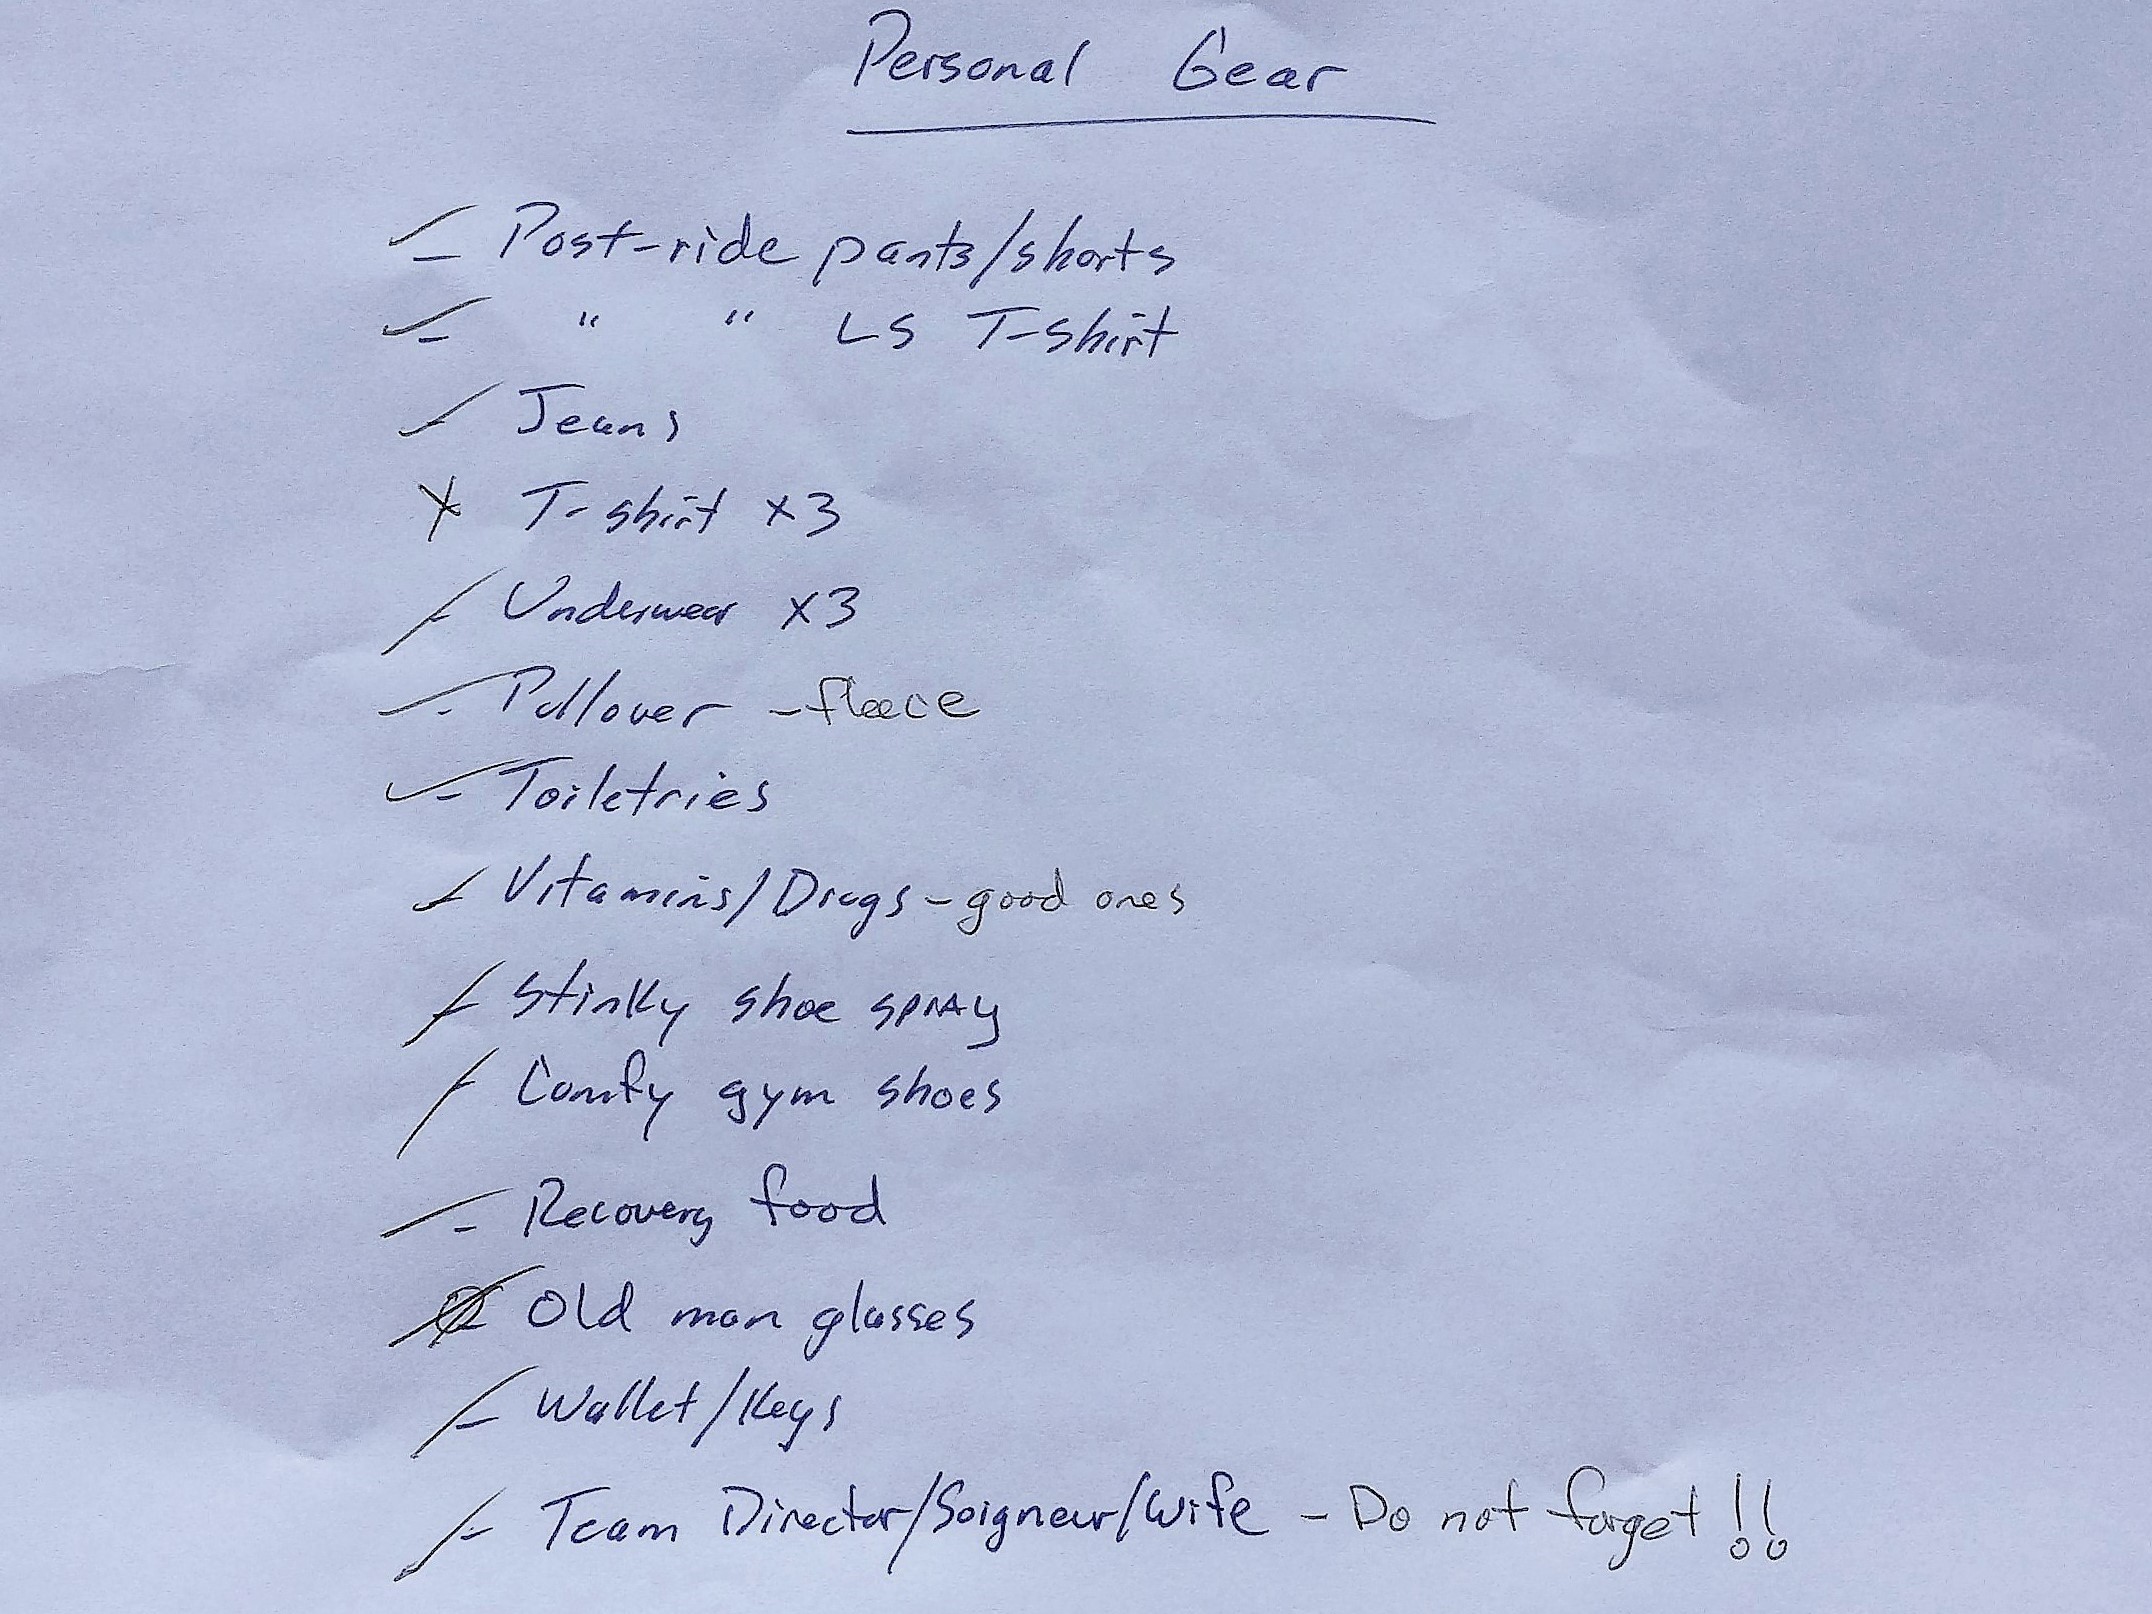 Personal Gear
- Post-ride pants/shorts
- " " LS T-shirt
- Jeans
X T-shirt x3
- Underwear x3
- Pullover - fleece
- Toiletries
- Vitamins/Drugs - good ones
- Stinky shoe spray
- Comfy gym shoes
- Recovery food
- Old man glasses
- Wallet/Keys
- Team Director/Soigneur/Wife - Do not forget!!